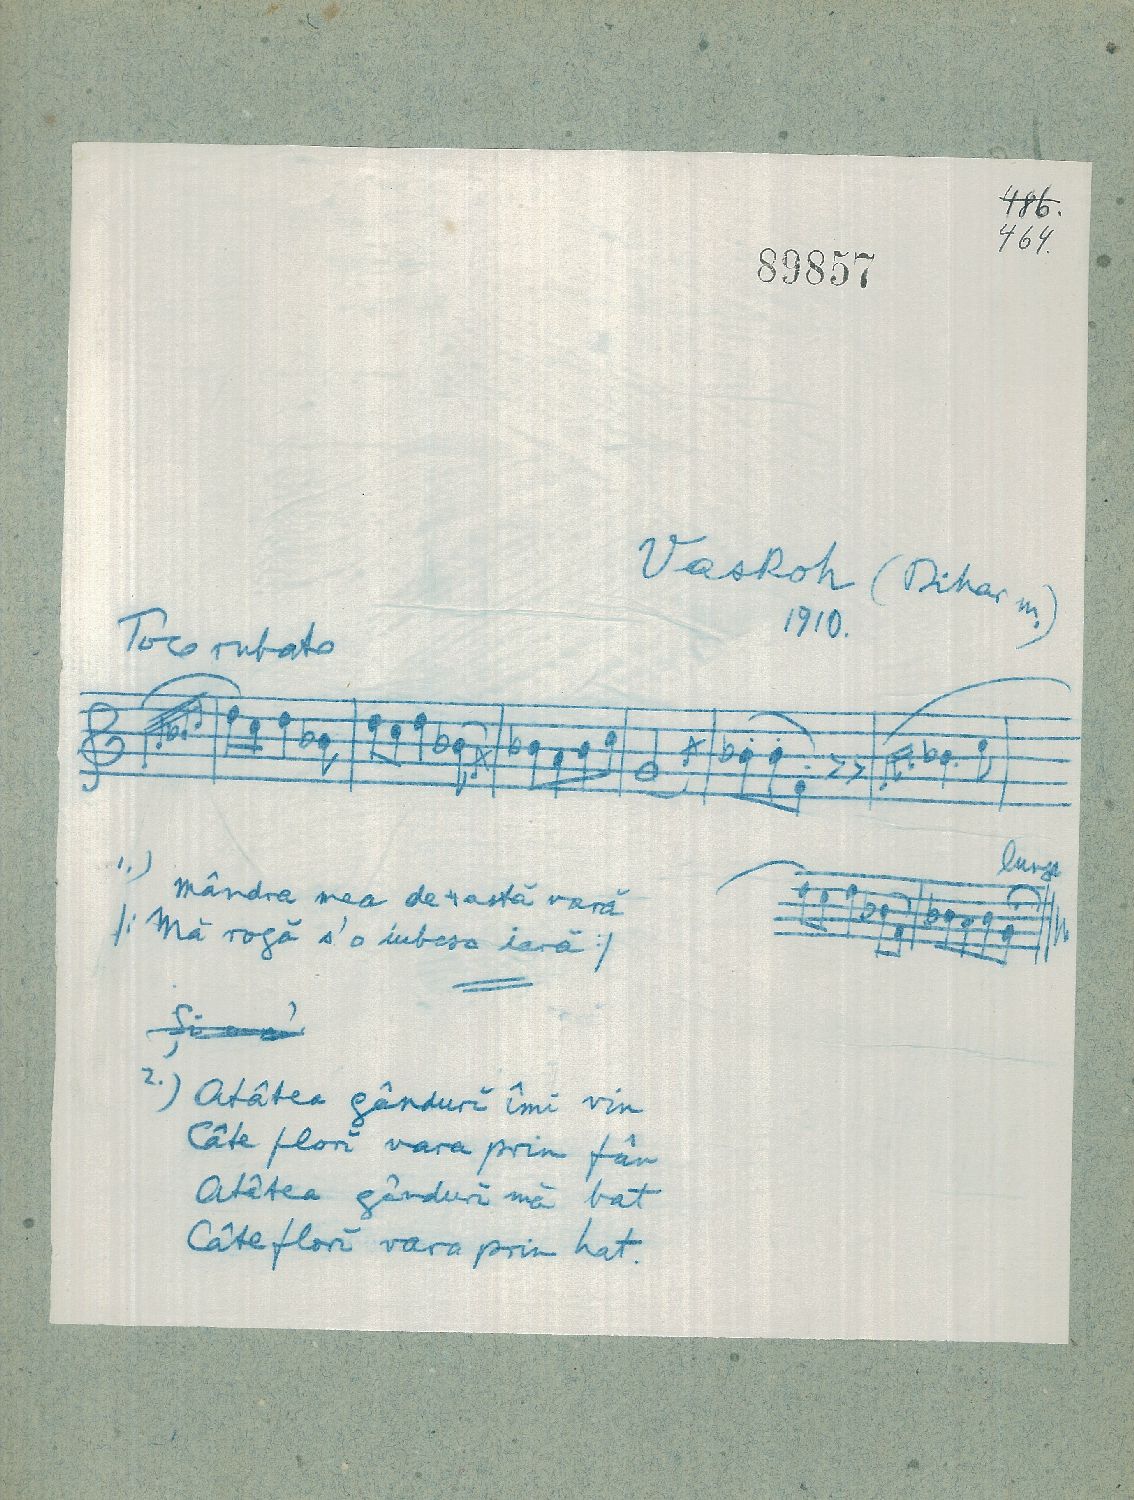 486.
464.
89857
Vaskoh (Bihar m.)
1910.
Poco rubato
lunga
1.) Mândra mea de astă vară
/: Mă rogă s'o iubesc iară :/
Și
2.) Atâtea gândurĭ îmĭ vin
Câte florĭ vara prin fân
Atâtea gândurĭ mă bat
Câte florĭ vara prin hat.